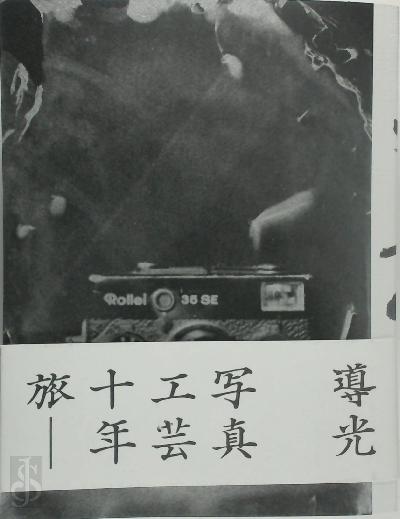 Rollei 35 SE
導光
写真
工芸
十年
旅―